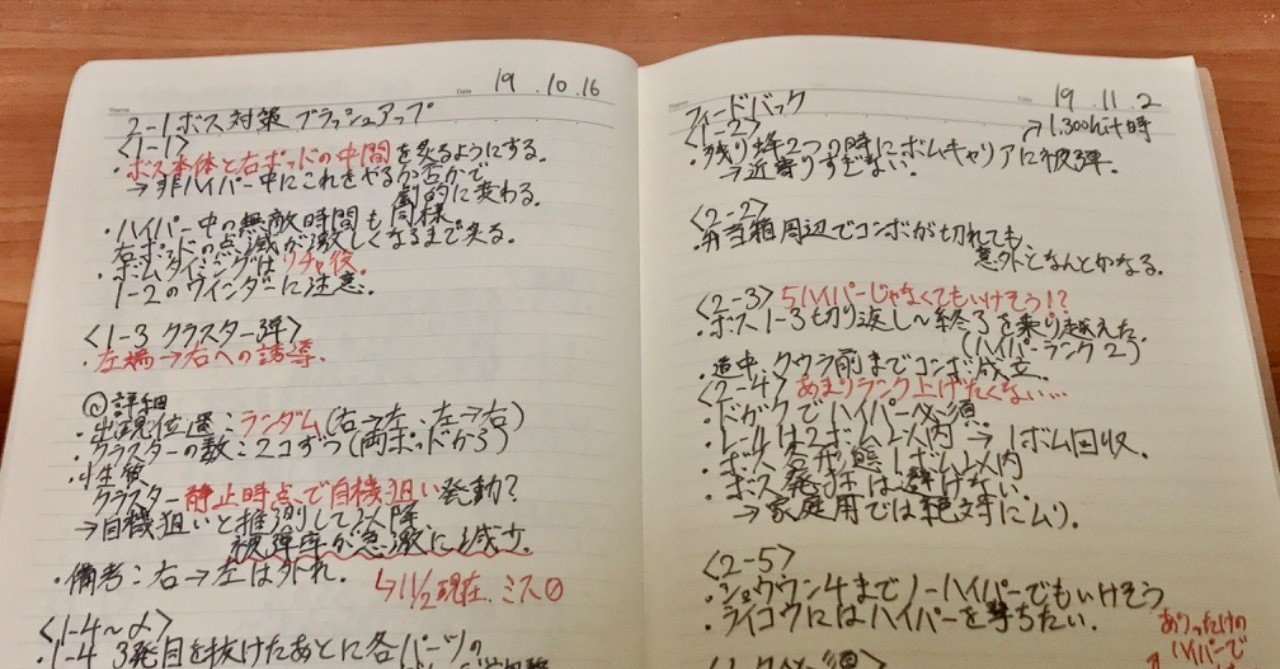 Theme
Date 19 . 10 . 16
2-1ボス対策ブラッシュアップ
<1-1>
・ボス本体と右ポッドの中間を炙るようにする。
→非ハイパー中にこれをやるか否かで
劇的に変わる。
・ハイパー中の無敵時間も同様。
右ポッドの点滅が激しくなるまで炙る。
・ボムタイミングはリチャ後。
1-2のワインダーに注意。
<1-3 クラスター弾>
・左端→右への誘導。
◎詳細
・出現位置:ランダム(右→左、左→右)
・クラスターの数:2コずつ(両ポッドから)
・性質
クラスター静止時点で自機狙い発動?
→自機狙いと推測して以降
被弾率が急激に減少。
・備考:右→左は外れ。
↳11/2現在、ミス0
<1-4~〆>
・1-4 3発目を抜けたあとに各パーツの
Theme
Date 19 . 11 . 2
フィードバック
<1-2>
→1,300hit時
・残り蜂2つの時にボムキャリアに被弾。
→近寄りすぎない。
<2-2>
・弁当箱周辺でコンボが切れても
意外となんとかなる。
<2-3> 5ハイパーじゃなくてもいけそう!?
・ボス1-3切り返し~終了を乗り越えた。
(ハイパーランク2)
・道中、クウラ前までコンボ成立。
<2-4> あまりランク上げたくない…
・ドガクでハイパー必須。
・1-4は2ボム以内→1ボム回収。
・ボス各形態1ボム以内
・ボス発狂は避けない。
→家庭用では絶対にムリ。
<2-5>
・ショウウン4までノーハイパーでもいけそう
・ライコウにはハイパーを撃ちたい。
ありったけの
ハイパーで